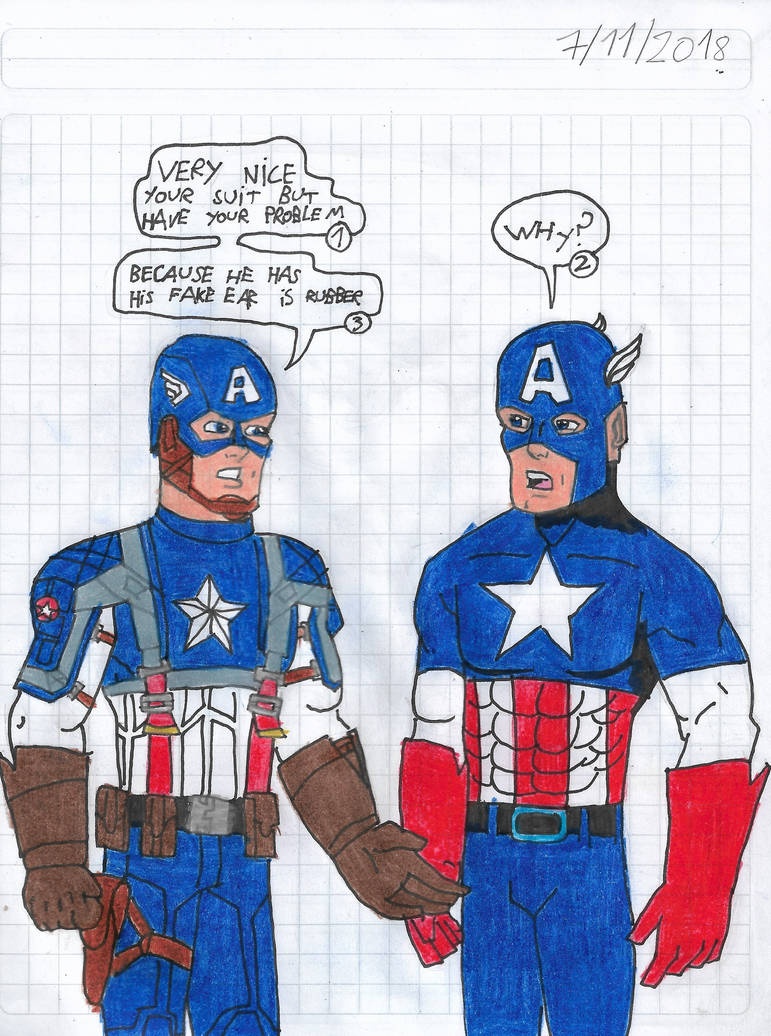 7/11/2018
VERY NiCE
YOUR SUiT BUT
HAVE YOUR PROBLEM
1
WHY?
2
BECAUSE HE HAS
HiS FAKE EAR iS RUBBER
3
A
A